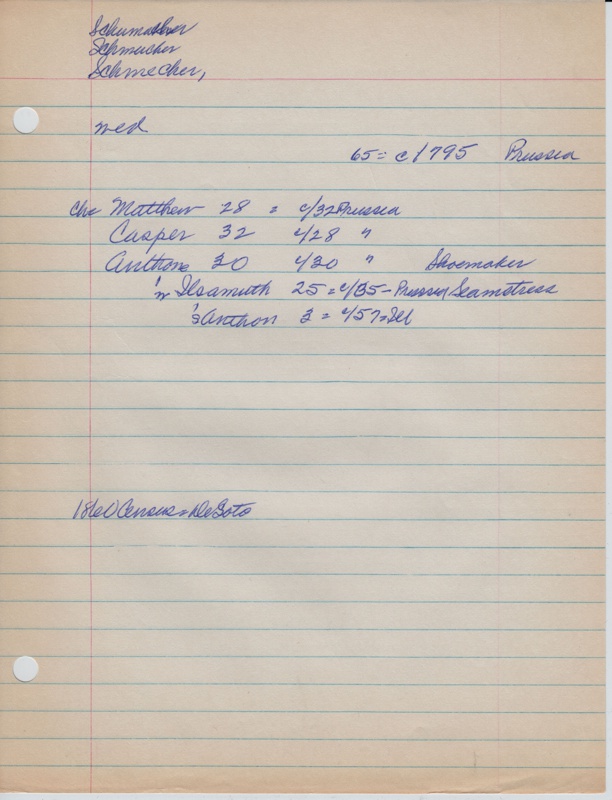 Schumacher
Schmucher
Schmecher,
wed
65 = c/1795 Prussia
Chr Matthew 28 = c/32 Prussia
Casper 32 c/28 "
Anthone 30 c/30 " Shoemaker
'w Ilsamuth 25 = c/35 - Prussia Seamstress
's Anthon 3 = c/57 = Ill
1860 Census = DeSoto